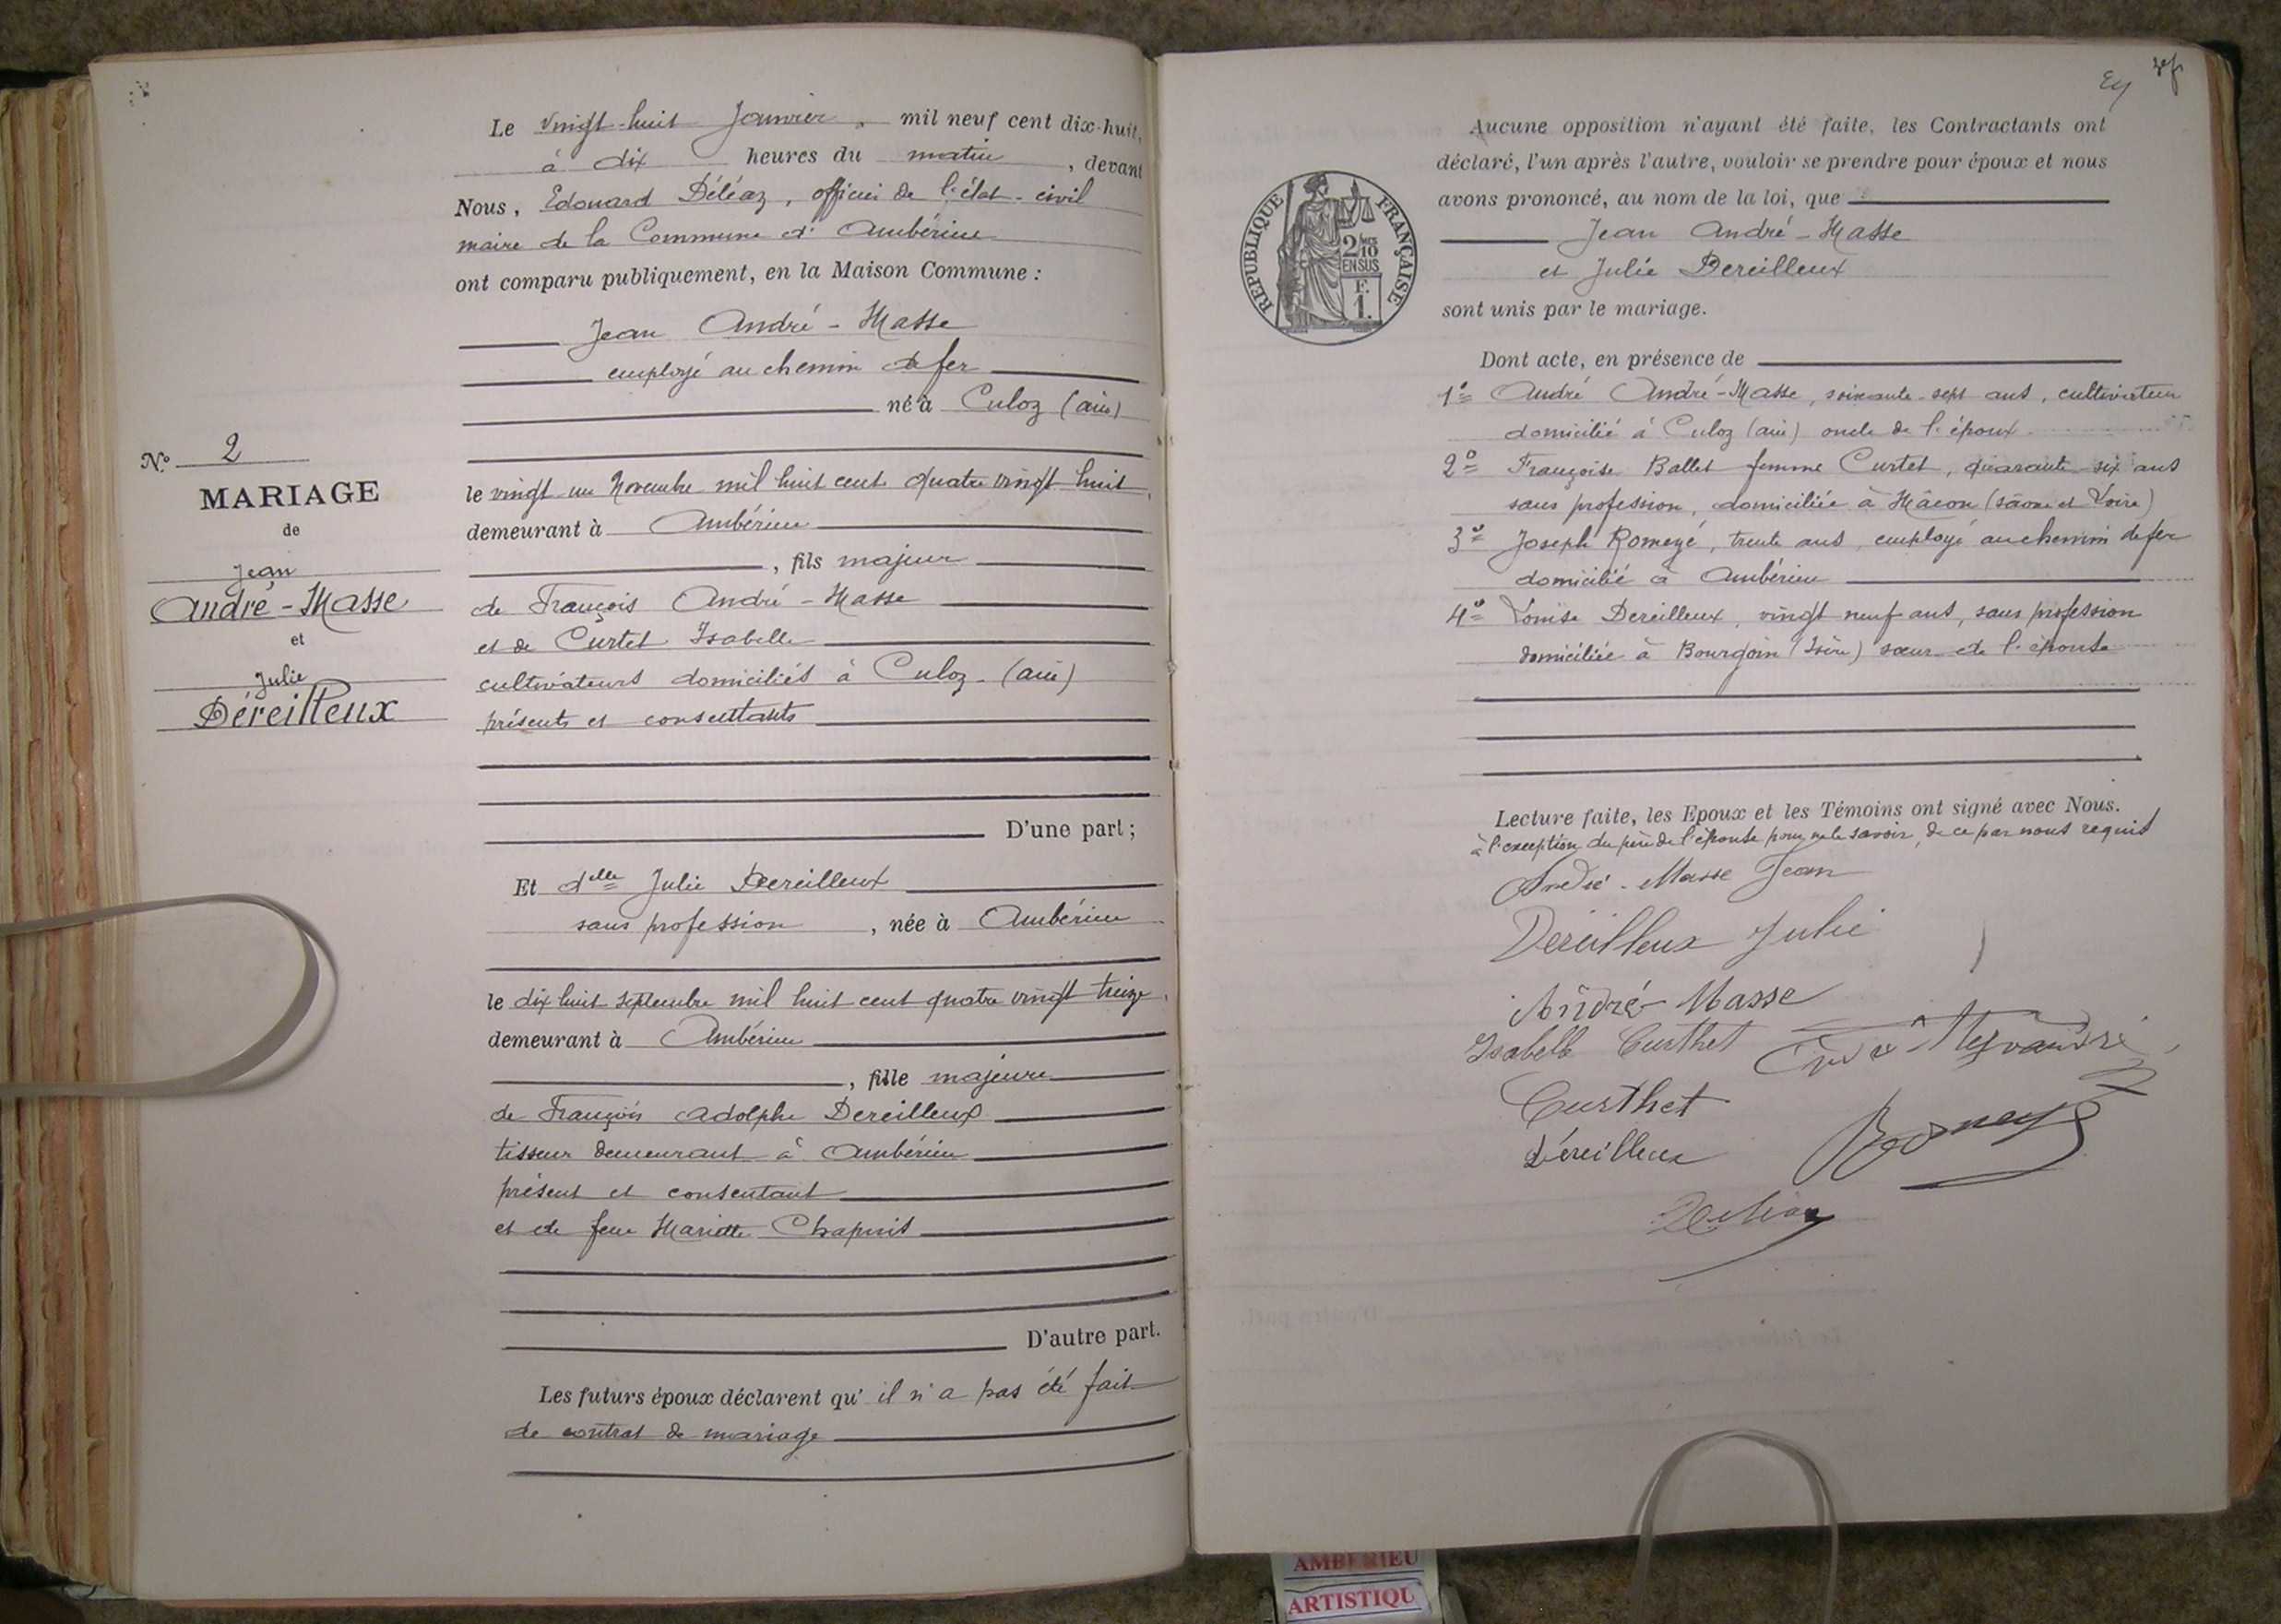 Le vingt-huit Janvier, mil neuf cent dix-huit,
à dix heures du matin, devant
Nous, Edouard Déléaz, officier de l'état-civil
maire de la Commune d'Ambérieu
ont comparu publiquement, en la Maison Commune :
Jean André-Masse
employé au chemin de fer
né à Culoz (ain)
le vingt un Novembre mil huit cent quatre vingt huit,
demeurant à Ambérieu
, fils majeur
de François André-Masse
et de Curtet Isabelle
cultivateurs domiciliés à Culoz (ain)
présents et consentants
D'une part ;
Et delle Julie Dereilleux
sans profession, née à Ambérieu
le dix huit septembre mil huit cent quatre vingt treize,
demeurant à Ambérieu
, fille majeure
de François Adolphe Dereilleux
tisseur demeurant à Ambérieu
présent et consentant
et de feue Mariette Chapuis
D'autre part.
Les futurs époux déclarent qu'il n'a pas été fait
de contrat de mariage
N° 2
MARIAGE
de
Jean
André-Masse
et
Julie
Déreilleux
Aucune opposition n'ayant été faite, les Contractants ont
déclaré, l'un après l'autre, vouloir se prendre pour époux et nous
avons prononcé, au nom de la loi, que
Jean André-Masse
et Julie Dereilleux
sont unis par le mariage.
Dont acte, en présence de
1° André André-Masse, soixante-sept ans, cultivateur
domicilié à Culoz (ain) oncle de l'époux
2° Françoise Ballet femme Curtet, quarante-six ans
sans profession, domiciliée à Mâcon (Sâone et Loire)
3° Joseph Romeyé, trente ans, employé au chemin de fer
domicilié à Ambérieu
4° Louise Dereilleux, vingt neuf ans, sans profession
domiciliée à Bourgoin (Isère) sœur de l'épouse
Lecture faite, les Epoux et les Témoins ont signé avec Nous.
à l'exception du père de l'épouse pour ne le savoir, de ce par nous requis
André-Masse Jean
Déreilleux Julie
André-Masse
Isabelle Curthet
Curthet
Déreilleux
REPUBLIQUE FRANÇAISE
2/10
EN SUS
F.
1.
AMBERIEU
ARTISTIQU